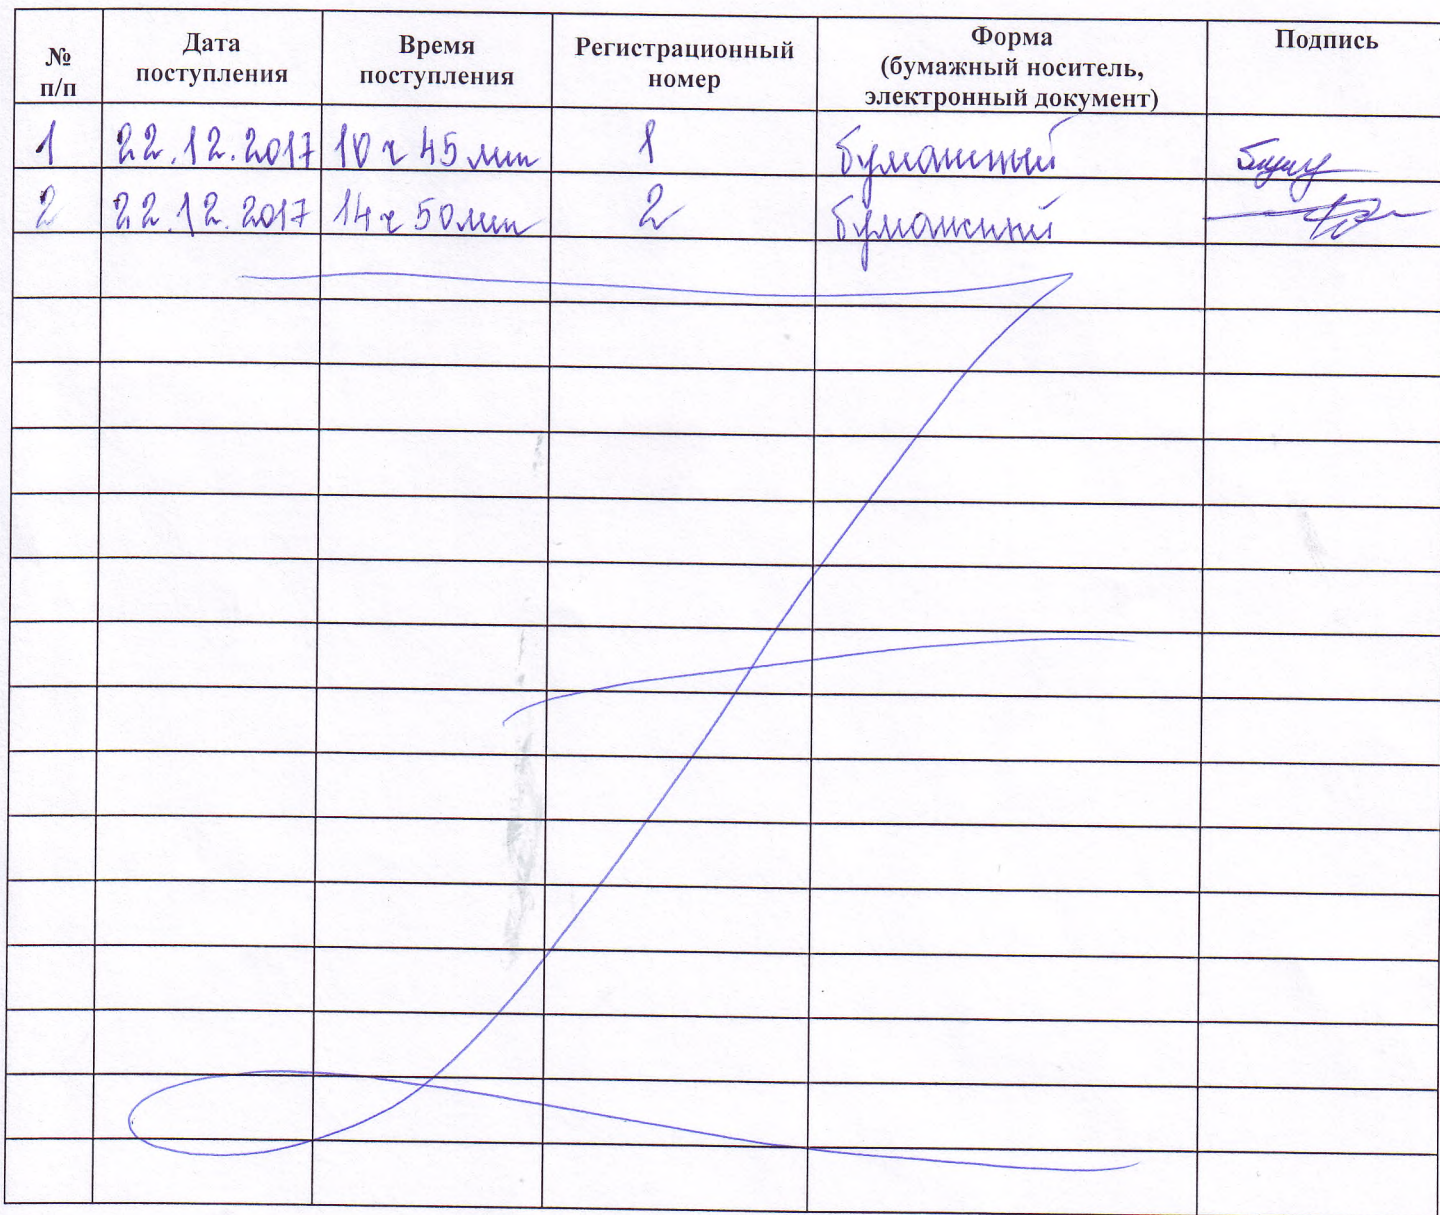 № п/п Дата поступления Время поступления Регистрационный номер Форма (бумажный носитель, электронный документ) Подпись
1 22.12.2017 10 ч 45 мин 1 бумажный
2 22.12.2017 14 ч 50 мин 2 бумажный